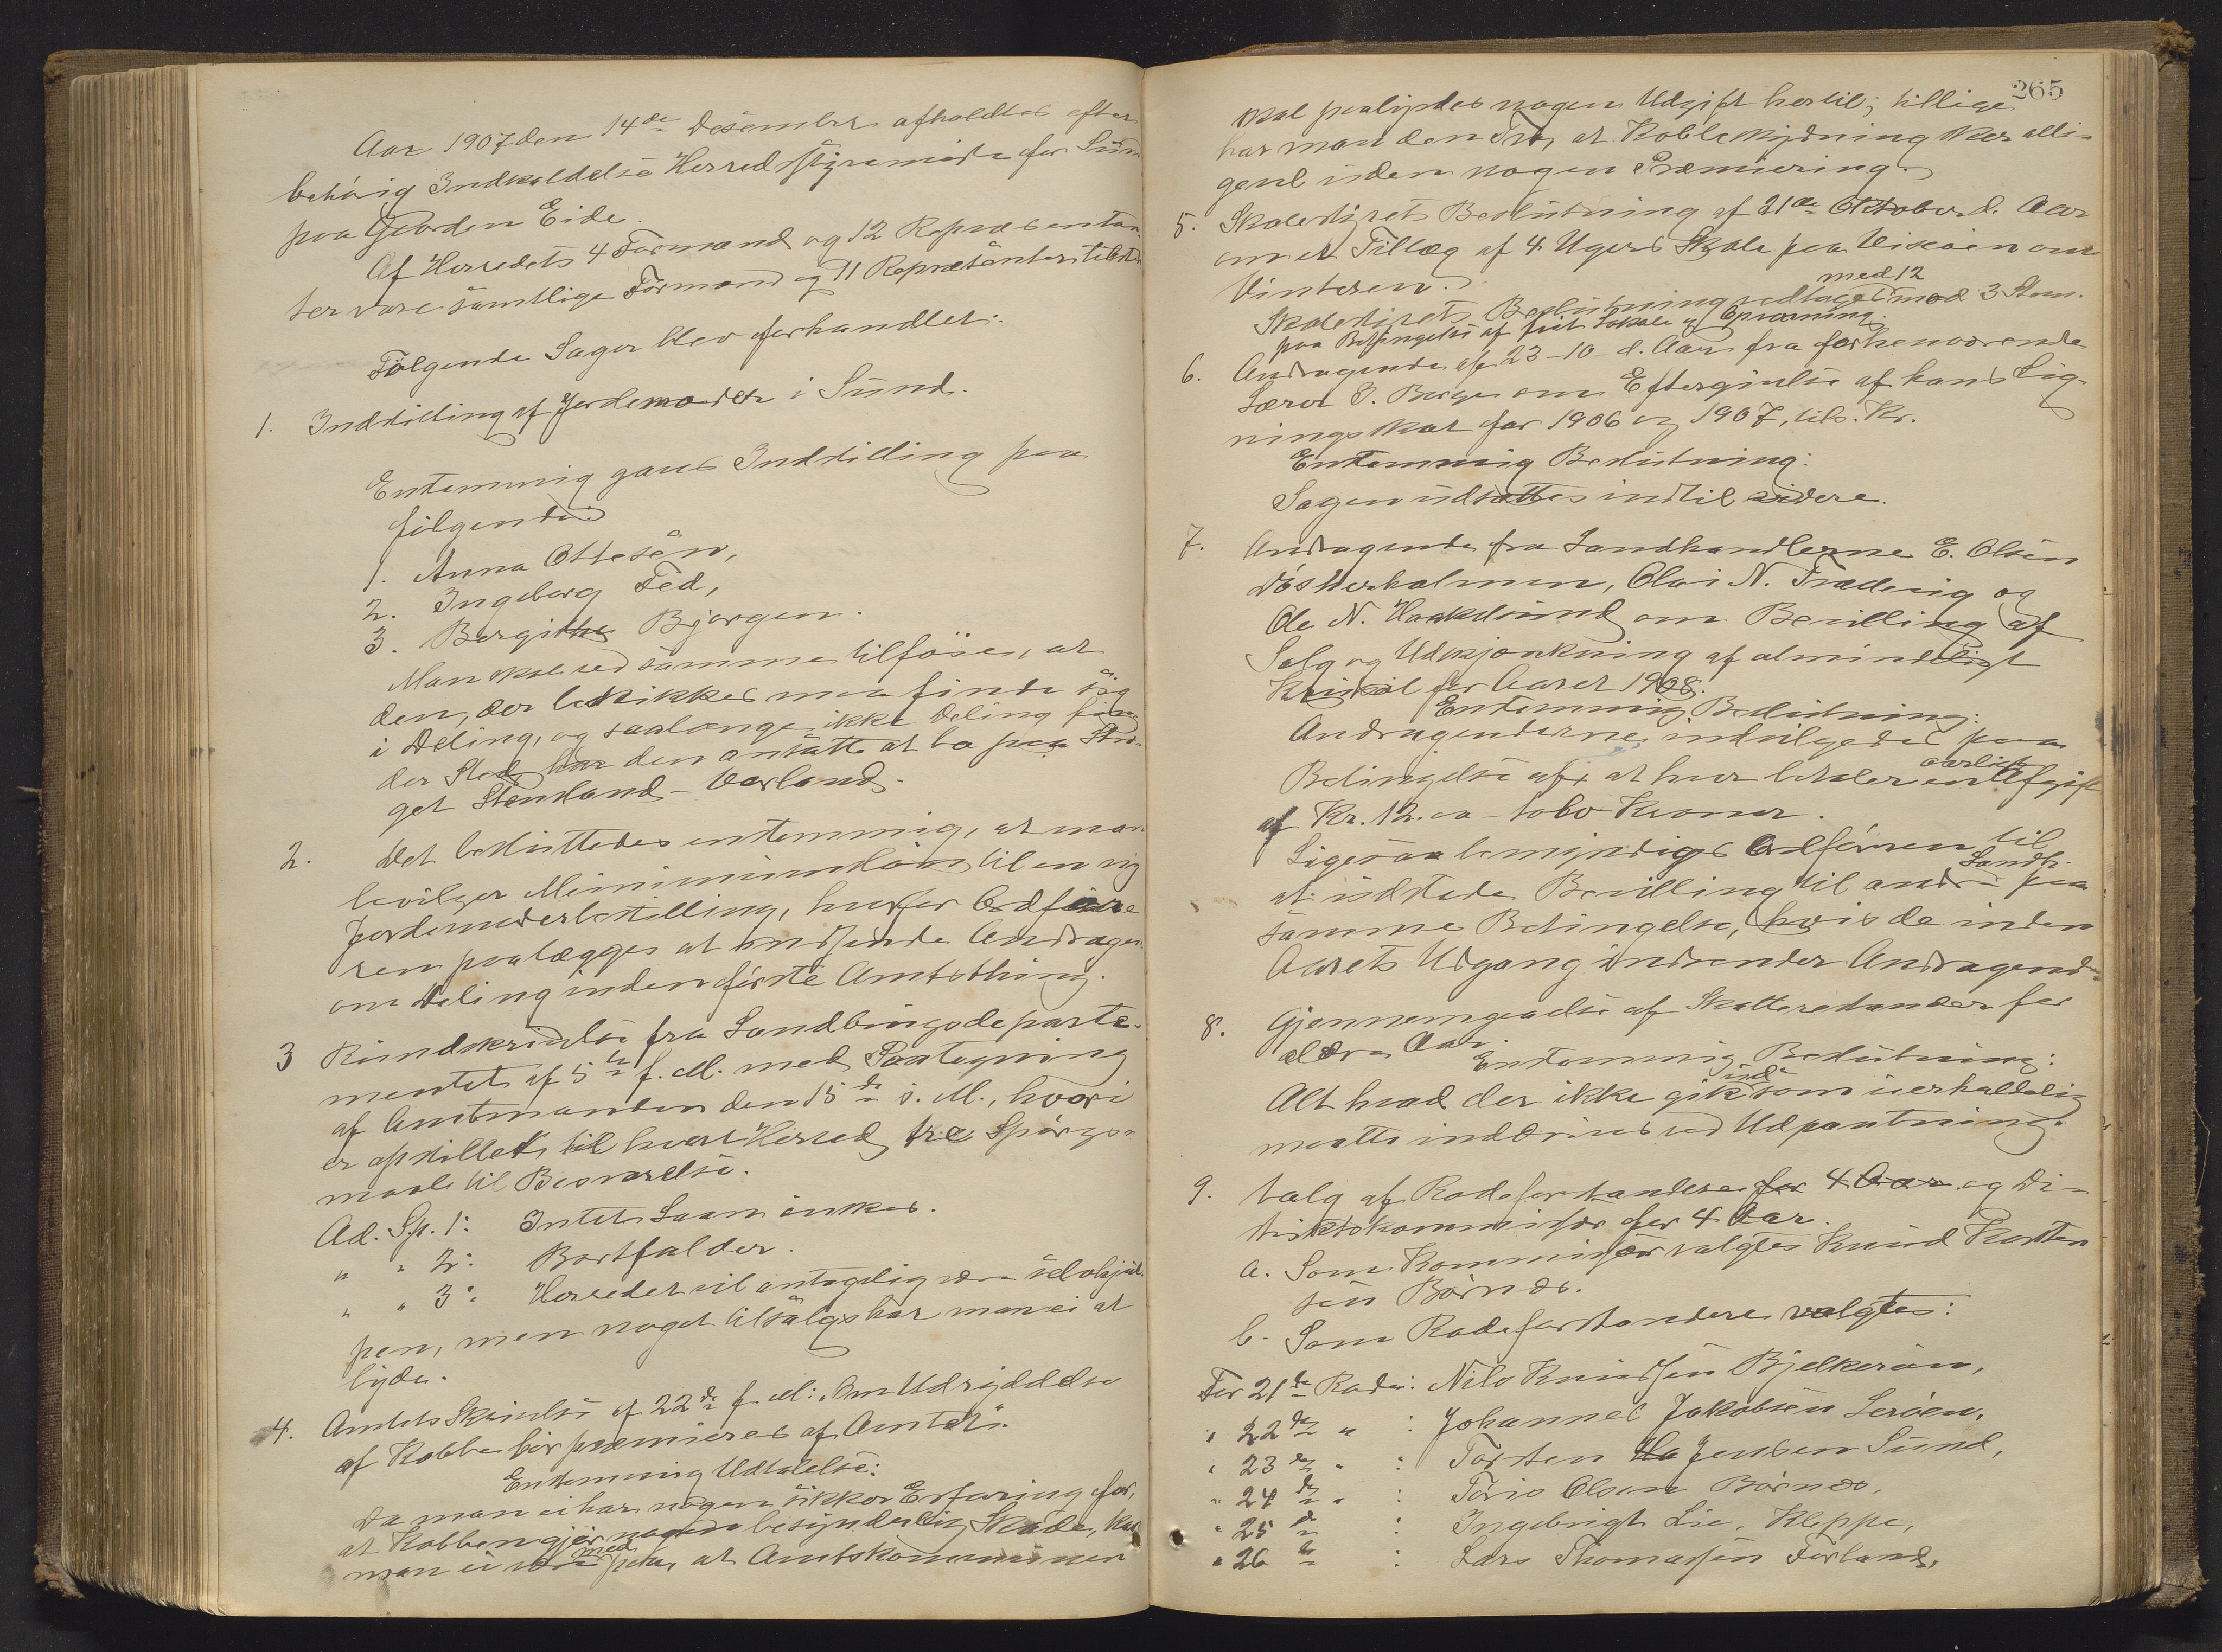 Aar 1907 den 14de Desember afholdtes efter
behörig Indkaldelse Herredsstyremöde for Sund
paa Gaarden Eide.
Af Herredets 4 Formænd og 12 Repræsentan-
ter vare samtlige Formænd og 11 Repræsentanter tilstede
Fölgende Sager blev forhandlet:
1. Indstilling af Jordemoder i Sund.
Enstemmig gaves Indstilling paa
fölgende:
1. Anna Ottesen,
2. Ingeborg Fed,
3. Bergithe Bjorgen.
Man skal ved samme tilföie, at
den, der beskikkes maa finde sig
i Deling, og saalænge ikke Deling fin-
der Sted har den ansatte at bo paa Strö-
get Steinsland - Vorland.
2. Det besluttedes enstemmig, at man
bevilger Minimumslön til en ny
Jordemoderbestilling, hvorfor Ordföre
ren paalægges at indsende Andragen
om Deling inden förste Amtsthing.
3 Rundskrivelse fra Landbrugsdeparte-
mentet af 5te f. M. med Paategning
af Amtmanden den 15de s. M., hvori
er opstillet til hvert Herred tre Spörgs-
maale til Besvarelse.
Ad. Sp. 1: Intet Laan önskes.
" " 2: Bortfalder.
" " 3: Herredet vil antagelig være selvhjul-
pen, men noget tilsalgs har man ei at
byde.
4. Amtets Skrivelse af 22de f. M.: Om Udryddelse
af Kobbe bör præmieres af Amtet.
Enstemmig Udtalelse:
Da man ei har nogen sikker Erfaring for,
at Kobben gjör nogen besynderlig Skade, kan
man ei være med paa, at Amtskommunen
265
skal paalydes nogen Udgift hertil; tillige
har man den Tro, at Kobbeskydning sker alli-
gevel uden nogen Præmiering.
5. Skolestyrets Beslutning af 21de Oktober d. Aar
om et Tillæg af 4 Ugers Skole paa Viksöen om
Vinteren.
Skolestyrets Beslutning vedtages med 12 mod 3 Stem.
paa Betingelse af frit Lokale og Opvarming.
6. Andragende af 23-10- d. Aar fra forhenværende
Lærer J. Berge om Eftergivelse af hans Lig-
ningsskat for 1906 og 1907, tils. Kr.
Enstemmig Beslutning:
Sagen udsættes indtil videre.
7. Andragende fra Landhandlerne E. Olsen
Lösterholmen, Olai N. Trædervig og
Ole N. Haakelsund om Bevilling af
Salg og Udskjænkning af almindeligt
 for Aaret 1908.
Enstemmig Beslutning:
Andragenderne indvilgedes paa
Betingelse af, at hver betaler en aarlig Afgift
af Kr. 12.00 - tolv Kroner.
Ligesaa bemyndiges Ordföreren til
at udstede Bevilling til andre Landh. paa
samme Betingelse, hvis de inden
Aarets Udgang indsender Andragende.
8. Gjennemgaaelse af Skatterestancer for
ældre Aar.
Enstemmig Beslutning:
Alt hvad der ikke gik ud som uerholdelig
maatte inddrives ved Udpantning.
9. Valg af Rodeforstandere for 4 Aar og Di-
striktskommissær for 4 Aar.
a. Som Kommissær valgtes Knud Karsten
sen Börnes.
b. Som Rodeforstandere valgtes:
For 21de Rode: Nils Knudsen Bjelkeröen,
" 22de " : Johannes Jakobsen Leröen,
" 23de " : Torsten Ha Jensen Sund,
" 24de " : Töris Olsen Börnes,
" 25de : Ingebrigt Lie, Kleppe,
" 26de : Lars Thomassen Forland,